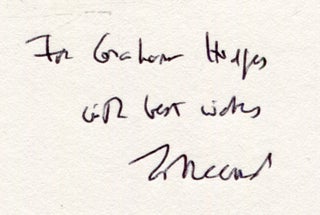 For Graham Hodges
with best wishes